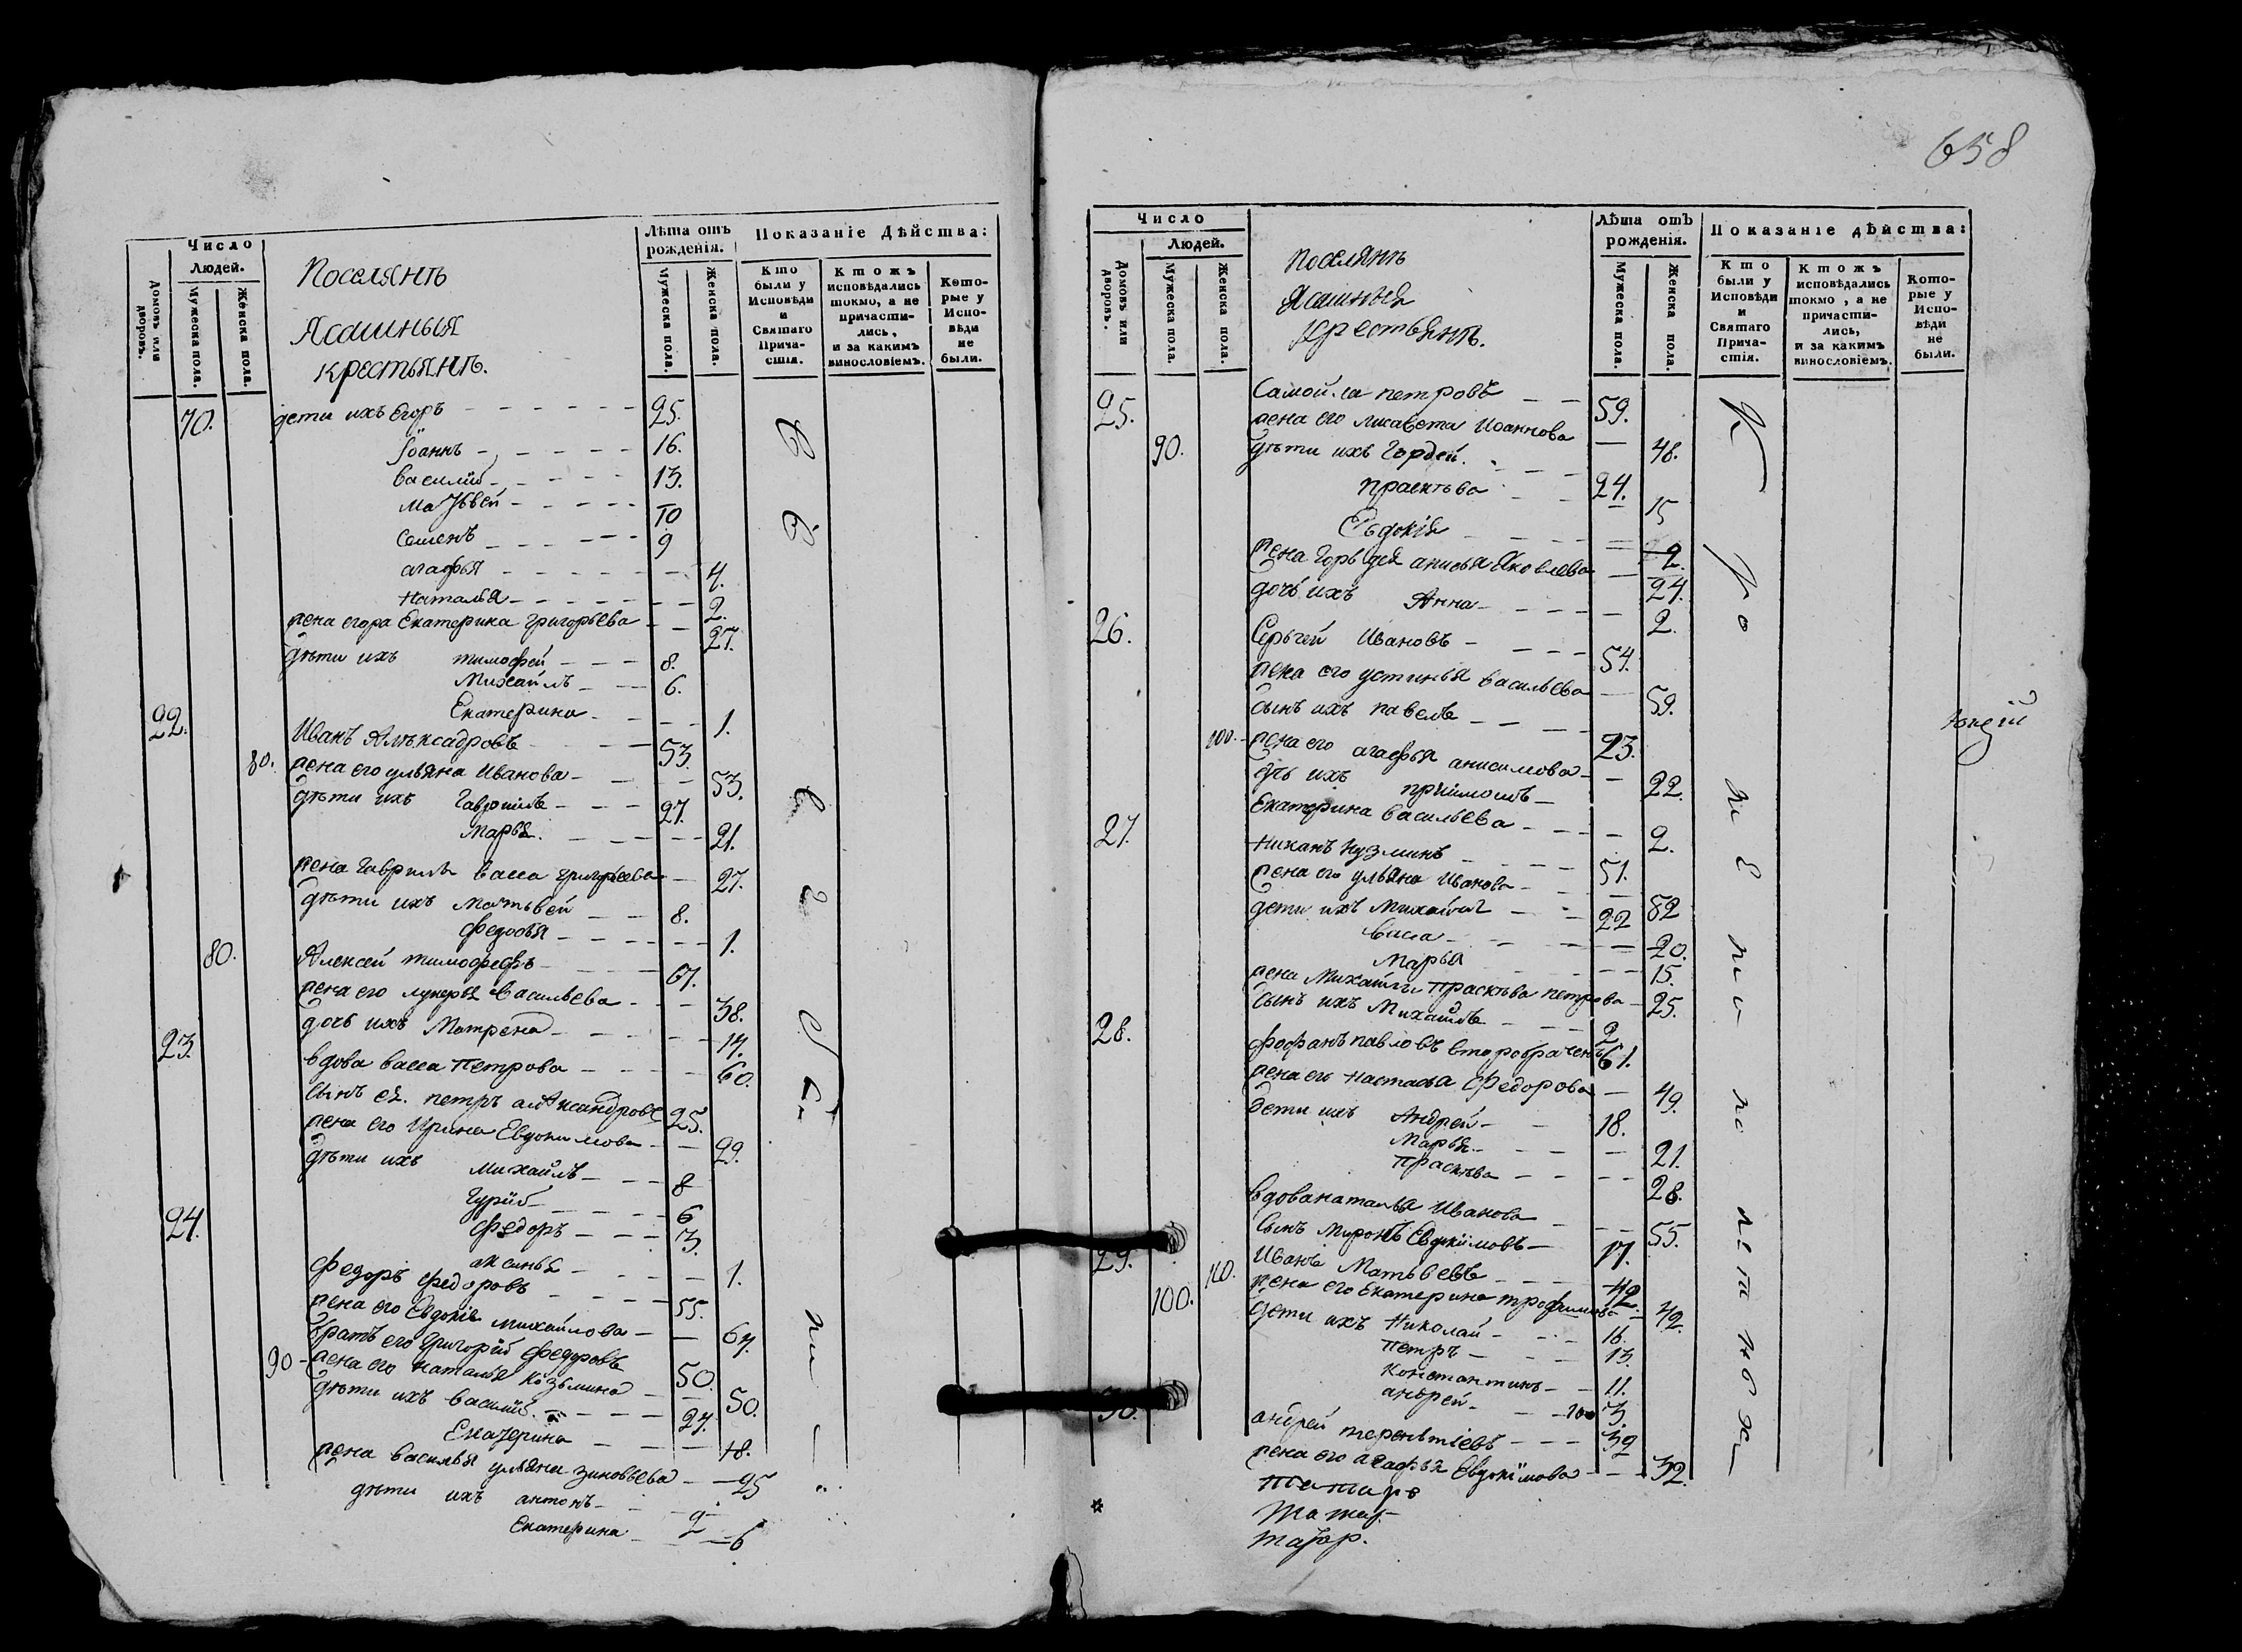 658
Число
Людей.
Домовъ или дворовъ.
Мужеска пола.
Женска пола.
Поселянъ
Ясашныя
крестьянъ.
Лѣта отъ рожденія.
Мужеска пола.
Женска пола.
Показаніе Дѣйства:
Кто были у Исповѣди и Святаго Причастія.
Ктожъ исповѣдались токмо, а не причастились, и за какимъ винословіемъ.
Которые у Исповѣди не были.
70. дети ихъ Егоръ 25.
Іоаннъ 16.
Василій 13.
Матвей 10
Семенъ 9
агафья 4.
Наталья 2.
жена егора Екатерина григорьева 27.
дѣти ихъ тимофей 8.
Михаилъ 6.
Екатерина 1.
22. Иванъ Алѣксадровъ 53.
80. жена его ульяна Иванова 53.
дѣти ихъ Гаврилъ 27.
Марья 21.
жена Гаврилы васса григорьева 27.
дѣти ихъ Матьвей 8.
федосья 1.
80. Алексей тимофефъ 67.
жена его лукерья васильева 38.
дочь ихъ Матрена 14.
23. вдова васса Петрова 60.
сынъ ея петръ алѣксандровъ 25.
жена его Ирина Евдокимова 29.
дѣти ихъ михаилъ 8
Гурій 6
федоръ 3.
аксинья 1.
24. федоръ федоровъ 55.
жена его Евдокія михайлова 64.
братъ его григорій федоровъ 50.
90 жена его наталья козьмина 50.
дѣти ихъ василій 24.
Екатерина 18.
жена василья ульяна зиновьева 25
дѣти ихъ антонъ 2
Екатерина 6
Число
Людей.
Домовъ или дворовъ.
Мужеска пола.
Женска пола.
Поселянъ
Ясашныя
крестьянъ.
Лѣта отъ рожденія.
Мужеска пола.
Женска пола.
Показаніе дѣйства:
Кто были у Исповѣди и Святаго Причастія.
Ктожъ исповѣдались токмо, а не причастились, и за какимъ винословіемъ.
Которые у Исповѣди не были.
25. Самойла петровъ 59.
жена его лисавета Иоаннова 48.
90. дѣти ихъ Гордей 24.
прасковья 15
Евдокія 2.
жена Горьдея анисья Яковлева 24.
дочь ихъ Анна 2.
26. Серьгей Ивановъ 54.
жена его устинья васильева 59.
сынъ ихъ павелъ 23.
100. жена его агафья анисимова 22.
Екатерина васильева 2.
27. Никанъ Кузминъ 51.
жена его ульяна Иванова 52
дети ихъ Михаилъ 22
васса 20.
Марья 15.
жена Михаилы прасковья петрова 25.
сынъ ихъ Михаилъ 2
28. фофанъ павловъ второбраченъ 61.
жена его настасья Федорова 49.
дети ихъ Андрей 18.
Марья 21.
Прасковья 28.
вдова наталья Иванова 55.
сынъ Миронъ Евдокимовъ 17.
29. 110. Иванъ Матьвеевъ 42.
100. жена его Екатерина трофимова 42.
дѣти ихъ Николай 16.
Петръ 13.
Константинъ 11.
андрей 3.
30. андрей терентіевъ 32
жена его агафья Евдокимова 32.